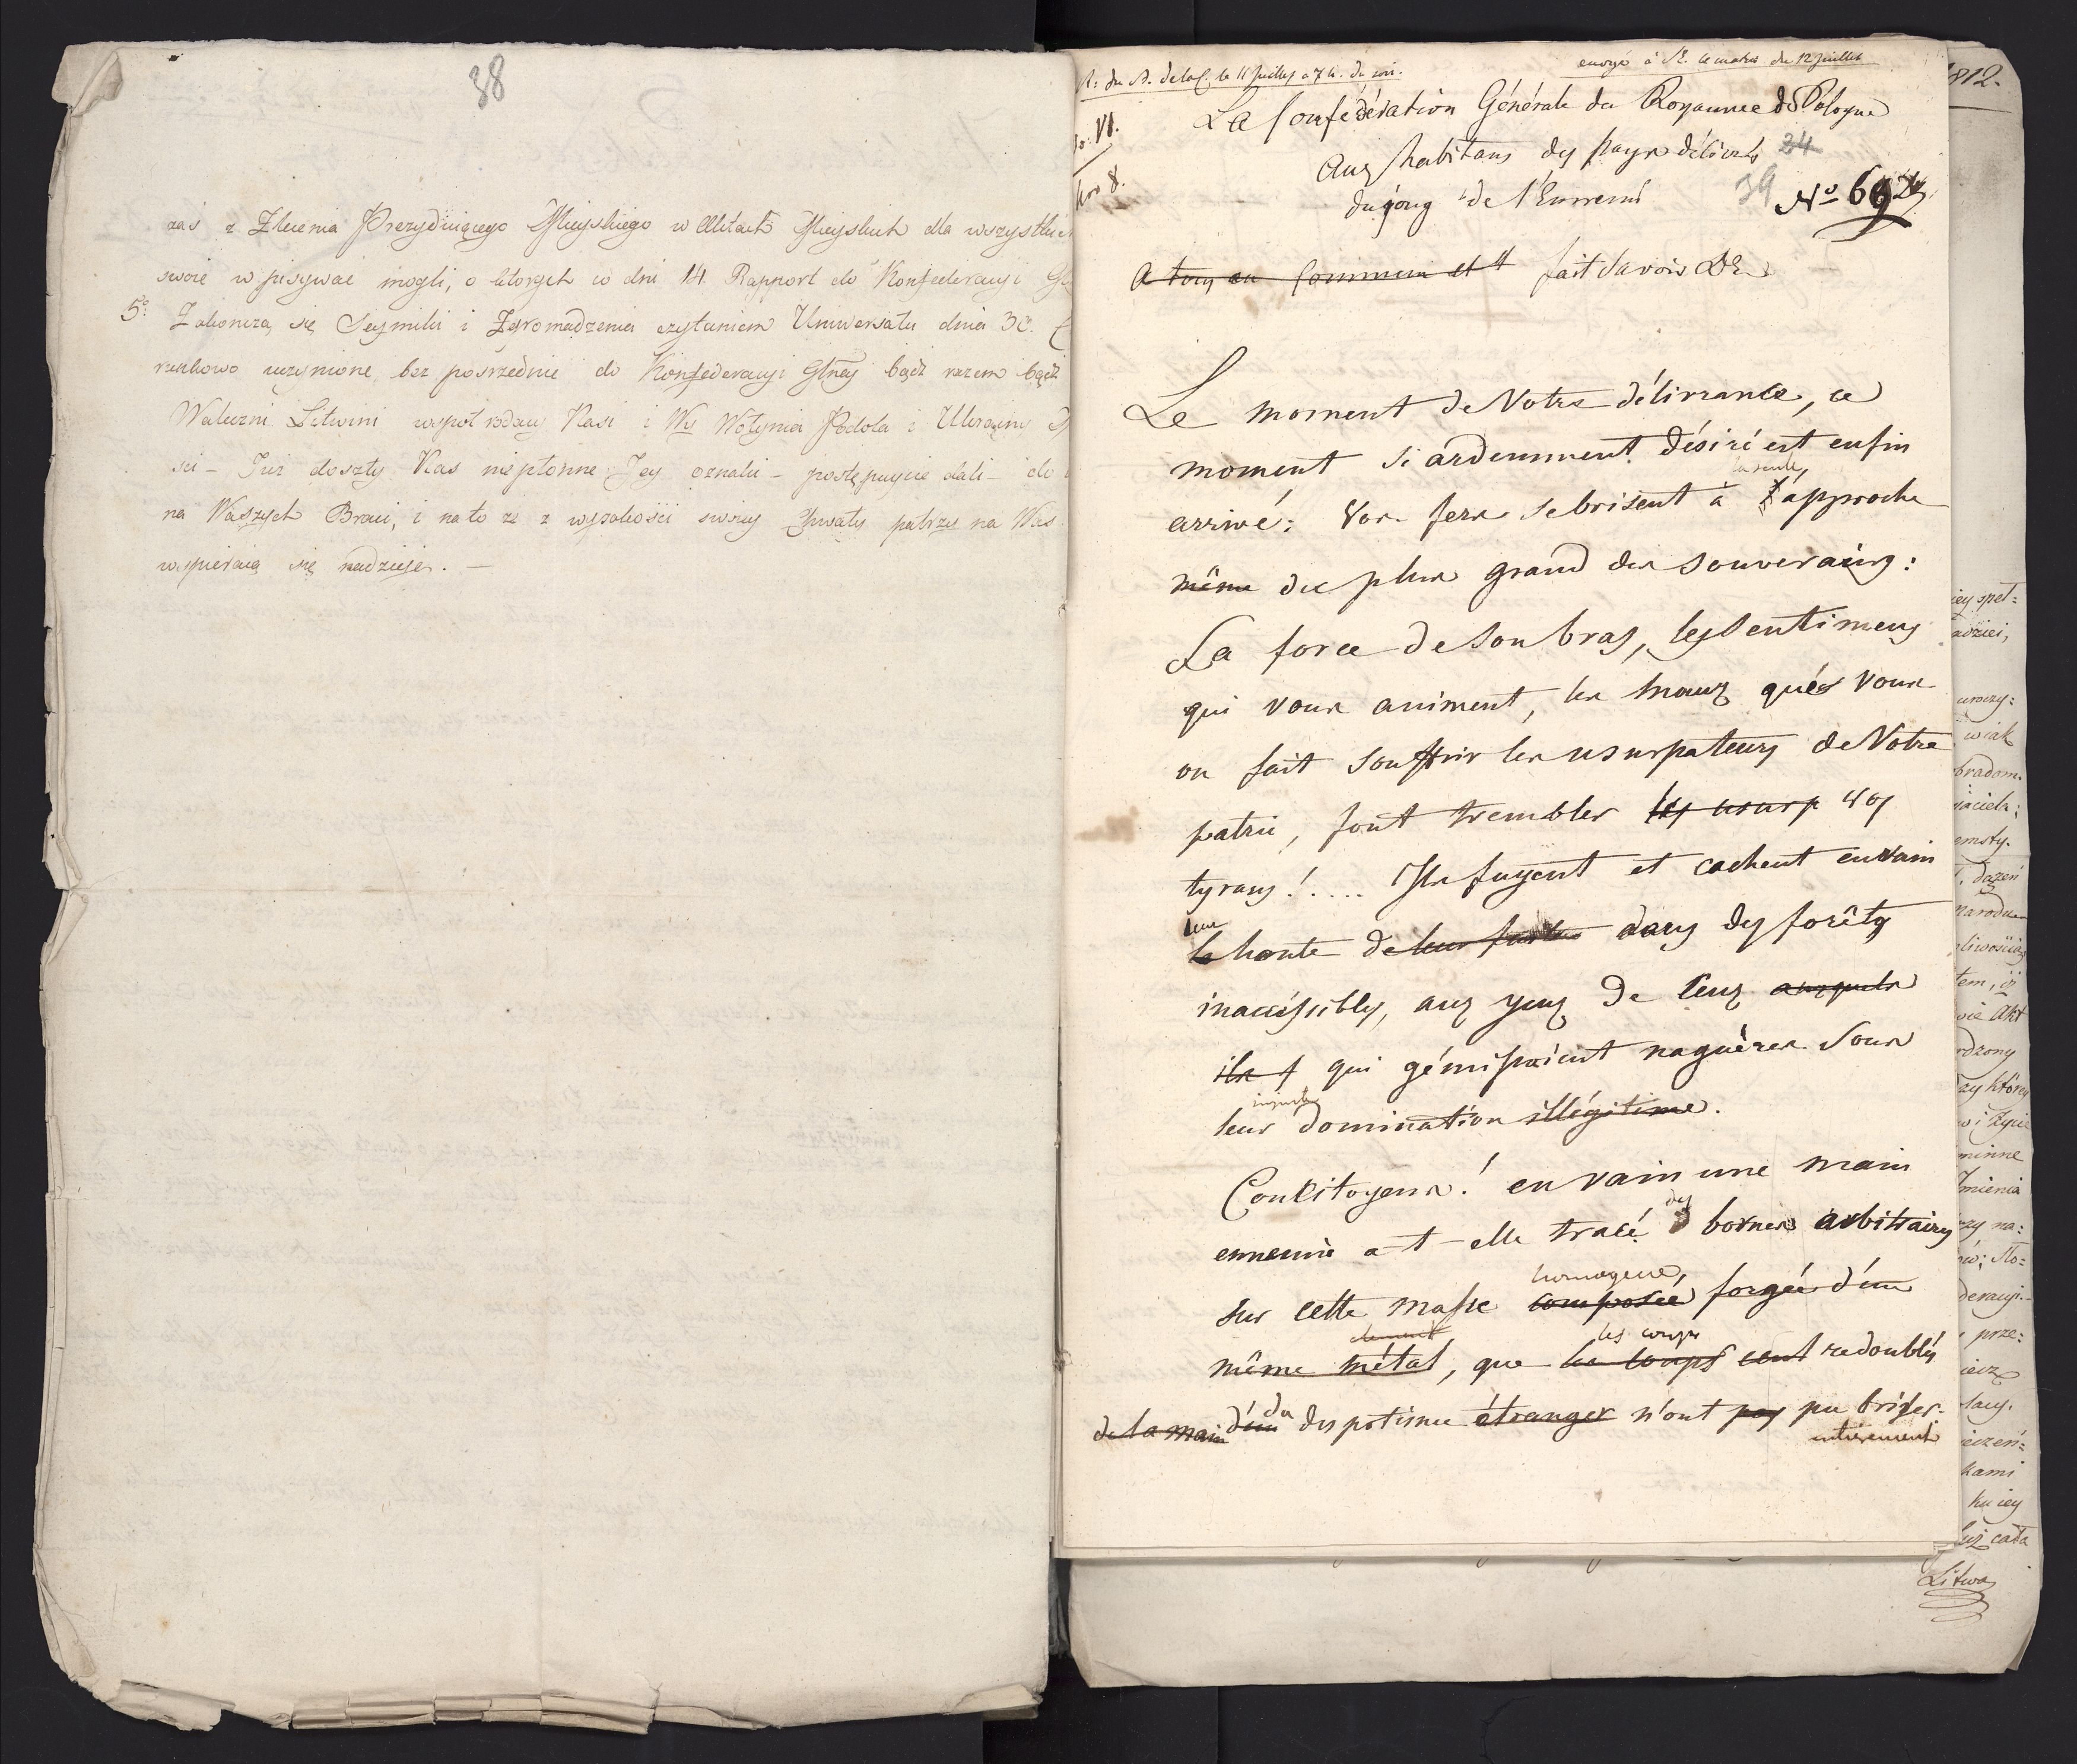 38
zaś z Zlecenia Prezyduiącego Mieyskiego w Aktach Mieyskich dla wszystkich
swoie wpisywać mogli, o których co dni 14 Rapport do Konfederacyi
5º: Zakończą się Seymiki i Zgromadzenia czytaniem Uniwersału dnia 30.
uczynione bez posrzednie do Konfederacyi Głney bądź razem bądź
Waleczni Litwini współ rodacy Nasi i Wy Wołynia Podola i Ukrainy
ści – Już doszły Was niepłonne Jey oznaki – postępuycie dali – do
na Waszych Braci, i na to że z wysokości swoiey Chwały patrzy na Was
wspieraią się nadzieje. —
le 11 Juillet a 7 h. du soir.
envoyé à le matin du 12 Juillet
La Conféderation Générale du Royaume de Pologne
Aux habitans des pays délivrés 34
du joug de l'Ennemi 39 Nº 69
No 8.
A tous en commun et fait savoir
Le moment de Votre délivrance, ce
moment si ardemment désiré est enfin
la seule
arrivé: Vos fers se brisent à l'approche
même du plus grand des souverains:
La force de son bras, les sentimens
qui vous animent, les maux qu'es vous
on fait souffrir les usurpateurs de Votre
patrie, font trembler les usurp vos
tyrans!.... Ils fuyent et cachent en vain
leur
la honte de leur dans des forêts
inaccéssibles, aux yeux de ceux auxquels
ils qui gémissoient naguères sous
injuste
leur domination illégitime.
Concitoyens! en vain une main
des
ennemie a-t-elle tracé bornes arbitraires
homogene,
sur cette masse composée forgée d'un
element les coups
même métal, que les coups redoublés
du
de la main d'un despotisme étranger n'ont pas pu briser.
entierement
1812.
iey spet=
adziei,
wiak
bradom.
iaciela;
emsty.
narodu
tem, iż
wie Akt
rdzony
ay którey
w i życie
minne
Imienia
rzy na:
deracyi.
prze:
kami
ku iey
już cała
Litwa